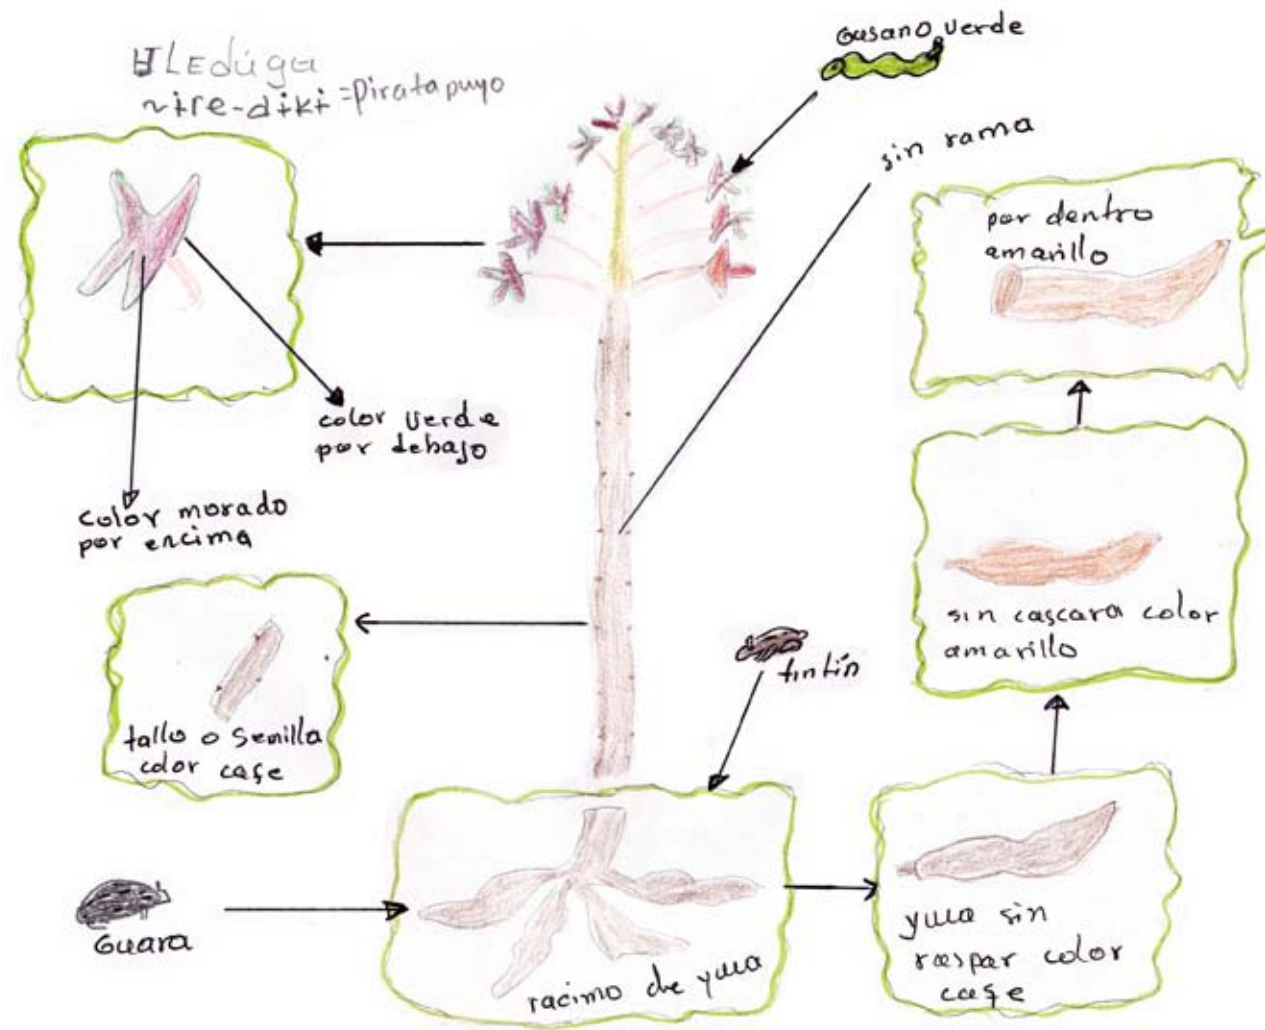 ʉLEdúga
~ɨre-dɨkɨ=piratapuyo
Gusano verde
sin rama
por dentro
amarillo
color verde
por debajo
color morado
por encima
sin cascara color
amarillo
tintín
tallo o semilla
color cafe
Guara
racimo de yuca
yuca sin
raspar color
cafe